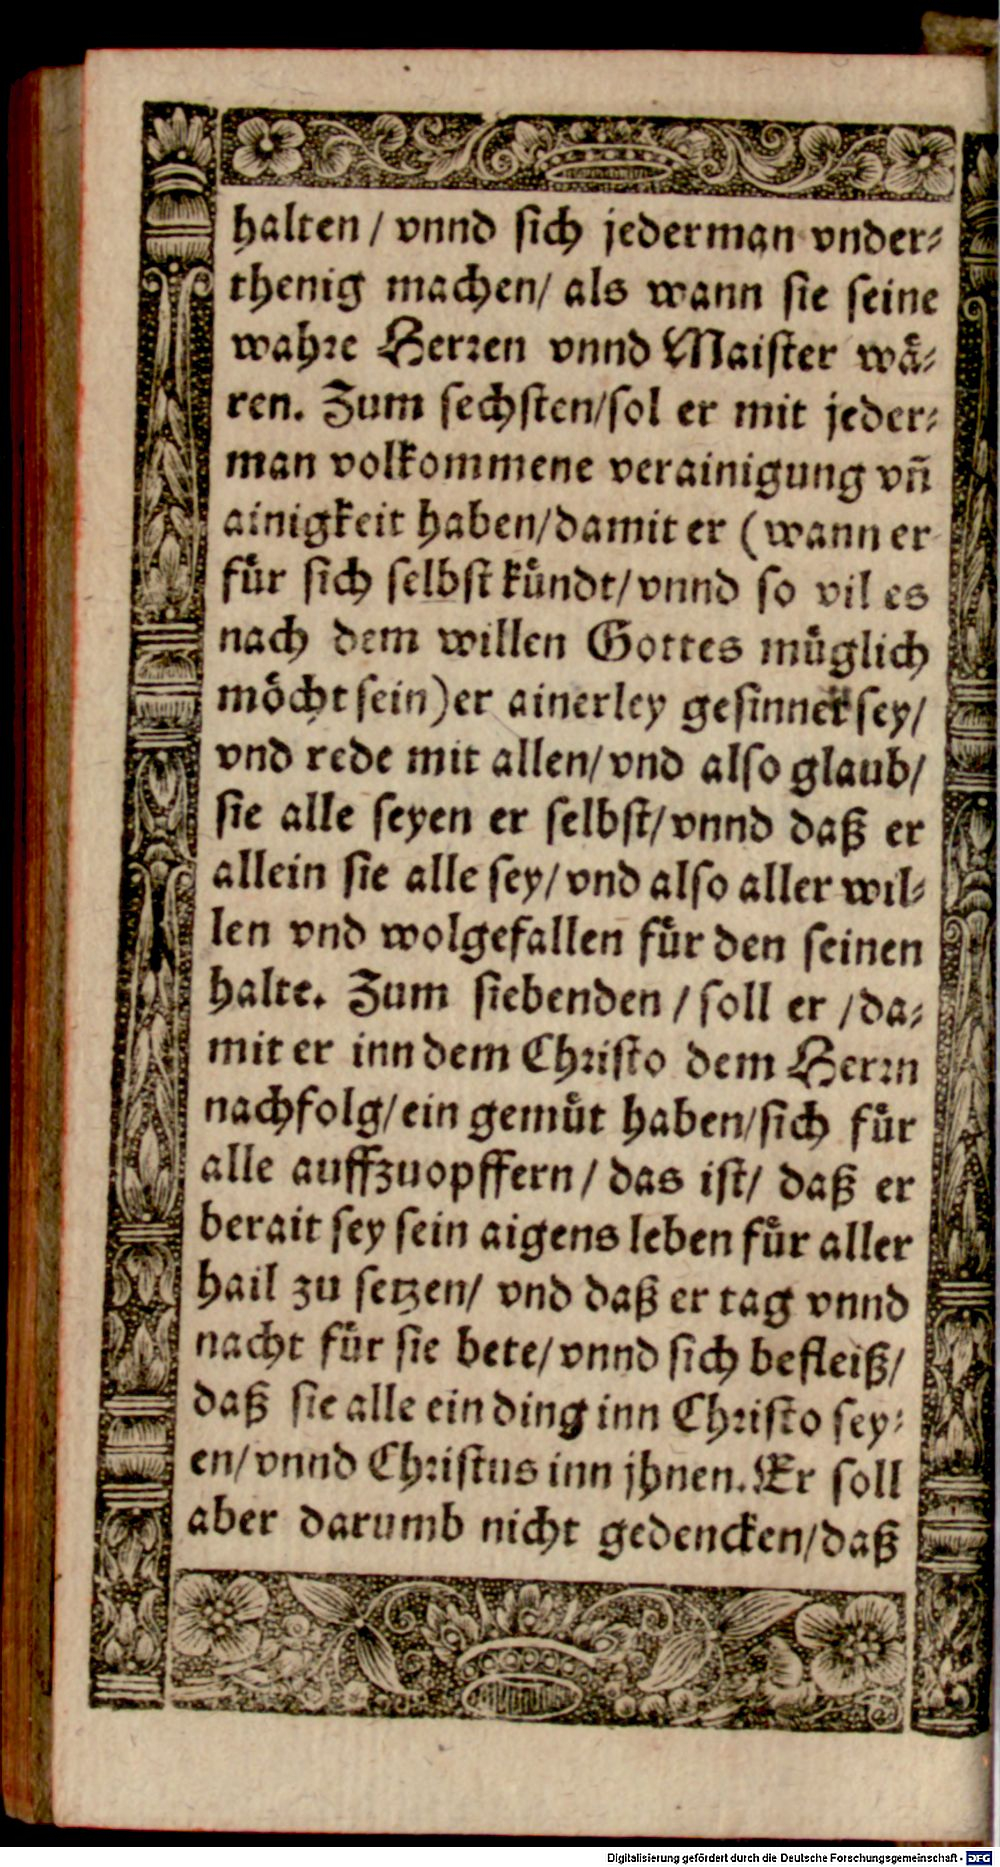 halten / vnnd sich jederman vnder⸗
thenig machen/ als wann sie seine
wahre Herren vnnd Maister waͤ⸗
ren. Zum sechsten/sol er mit jeder⸗
man volkommene verainigung vn̄
ainigkeit haben/damit er (wann er
fuͤr sich selbst kuͤndt/vnnd so vil es
nach dem willen Gottes muͤglich
moͤcht sein) er ainerley gesinnet sey/
vnd rede mit allen/vnd also glaub/
sie alle seyen er selbst/vnnd daß er
allein sie alle sey/vnd also aller wil⸗
len vnd wolgefallen fuͤr den seinen
halte. Zum siebenden / soll er /da⸗
mit er inn dem Christo dem Herrn
nachfolg/ein gemuͤt haben/sich fuͤr
alle auffzuopffern/ das ist/ daß er
berait sey sein aigens leben fuͤr aller
hail zu setzen/ vnd daß er tag vnnd
nacht fuͤr sie bete/vnnd sich befleiß/
daß sie alle ein ding inn Christo sey⸗
en/vnnd Christus inn jhnen. Er soll
aber darumb nicht gedencken/daß
Digitalisierung gefördert durch die Deutsche Forschungsgemeinschaft - DFG